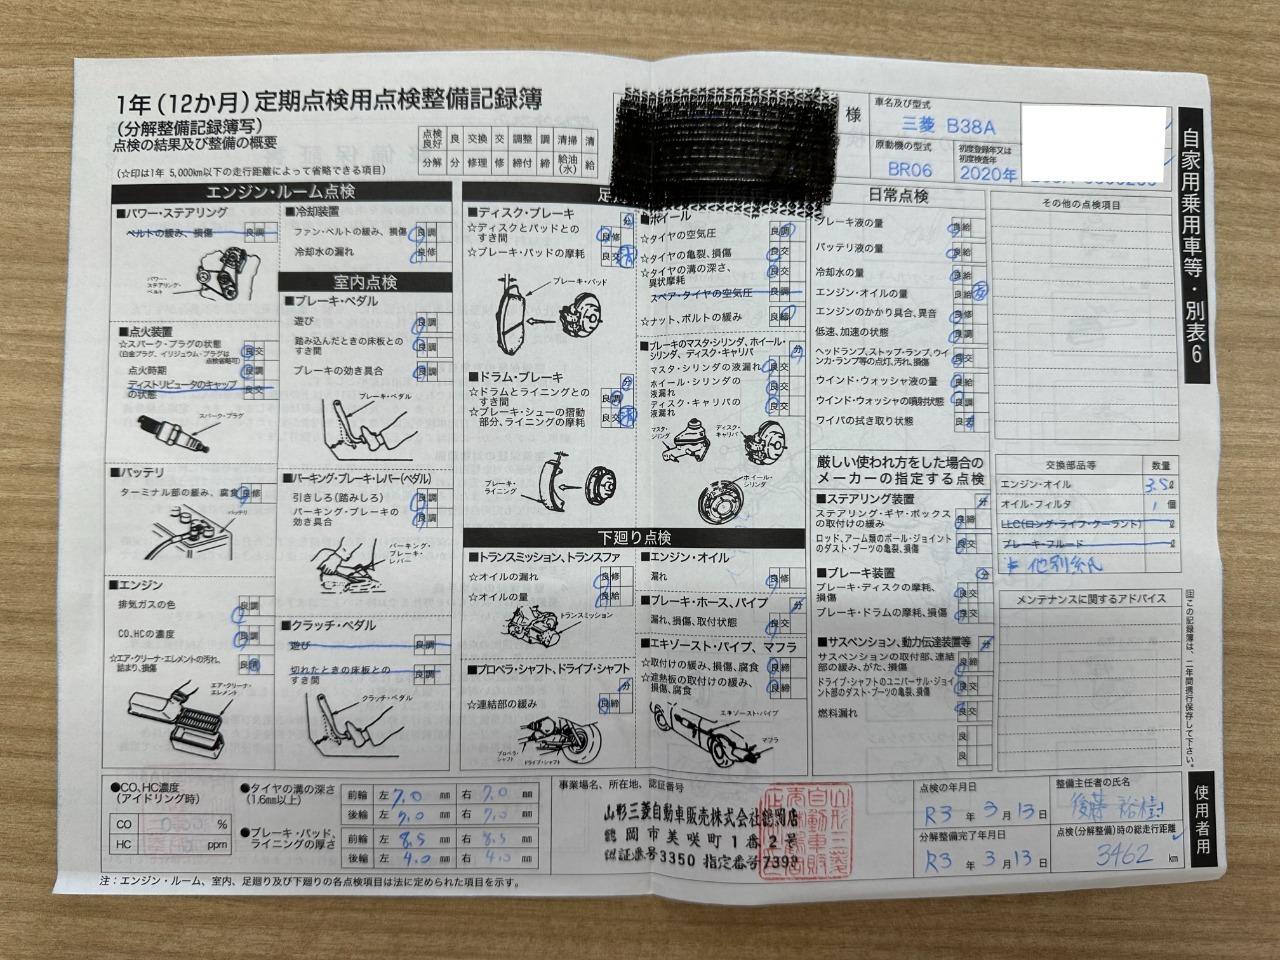 1年(12か月)定期点検用点検整備記録簿
(分解整備記録簿写)
点検の結果及び整備の概要
(☆印は1年 5,000km以下の走行距離によって省略できる項目)
点検良好 良 交換 交 調整 調 清掃 清
分解 分 修理 修 締付 締 給油(水) 給
様
車名及び型式
三菱 B38A
原動機の型式
BR06
初度登録年又は初度検査年
2020年
自家用乗用車等・別表6
エンジン・ルーム点検
■パワー・ステアリング
ベルトの緩み、損傷 良 調
パワー・ステアリング・ベルト
■点火装置
☆スパーク・プラグの状態
(白金プラグ、イリジュウム・プラグは点検省略可)
良 交
点火時期 良 調
ディストリビュータのキャップの状態 良 交
スパーク・プラグ
■バッテリ
ターミナル部の緩み、腐食 良 修
バッテリ
■エンジン
排気ガスの色 良 調
CO、HCの濃度 良 調
☆エア・クリーナ・エレメントの汚れ、詰まり、損傷 良
エア・クリーナ・エレメント
■冷却装置
ファン・ベルトの緩み、損傷 良 調
冷却水の漏れ 良 修
室内点検
■ブレーキ・ペダル
遊び 良 調
踏み込んだときの床板とのすき間 良 調
ブレーキの効き具合 良 調
ブレーキ・ペダル
■パーキング・ブレーキ・レバー(ペダル)
引きしろ(踏みしろ) 良 調
パーキング・ブレーキの効き具合 良 調
パーキング・ブレーキ・レバー
■クラッチ・ペダル
遊び 良 調
切れたときの床板とのすき間 良 調
クラッチ・ペダル
足
■ディスク・ブレーキ 分
☆ディスクとパッドとのすき間 良 修
☆ブレーキ・パッドの摩耗 良 交
ブレーキ・パッド
■ドラム・ブレーキ 分
☆ドラムとライニングとのすき間 良 調
☆ブレーキ・シューの摺動部分、ライニングの摩耗 良 交
ブレーキ・ライニング
■ホイール
☆タイヤの空気圧 良 調
☆タイヤの亀裂、損傷 良 交
☆タイヤの溝の深さ、異状摩耗 良 交
スペア・タイヤの空気圧 良 調
☆ナット、ボルトの緩み 良 締
■ブレーキのマスタ・シリンダ、ホイール・シリンダ、ディスク・キャリパ 分
マスタ・シリンダの液漏れ 良 交
ホイール・シリンダの液漏れ 良 交
ディスク・キャリパの液漏れ 良 交
マスタ・シリンダ
ディスク・キャリパ
ホイール・シリンダ
下廻り点検
■トランスミッション、トランスファ
☆オイルの漏れ 良 修
☆オイルの量 良 給
トランスミッション
■プロペラ・シャフト、ドライブ・シャフト 分
☆連結部の緩み 良 締
プロペラ・シャフト
ドライブ・シャフト
■エンジン・オイル
漏れ 良 修
■ブレーキ・ホース、パイプ 分
漏れ、損傷、取付状態 良 交
■エキゾースト・パイプ、マフラ
☆取付けの緩み、損傷、腐食 良 締
☆遮熱板の取付けの緩み、損傷、腐食 良 締
エキゾースト・パイプ
マフラ
日常点検
ブレーキ液の量 良 給
バッテリ液の量 良 給
冷却水の量 良 給
エンジン・オイルの量 良 給 交
エンジンのかかり具合、異音 良 修
低速、加速の状態 良 調
ヘッドランプ、ストップ・ランプ、ウインカ・ランプ等の点灯、汚れ、損傷 良 交
ウインド・ウォッシャ液の量 良 給
ウインド・ウォッシャの噴射状態 良 調
ワイパの拭き取り状態 良
厳しい使われ方をした場合のメーカーの指定する点検
■ステアリング装置 分
ステアリング・ギヤ・ボックスの取付けの緩み 良 締
ロッド、アーム類のボール・ジョイントのダスト・ブーツの亀裂、損傷 良 交
■ブレーキ装置 分
ブレーキ・ディスクの摩耗、損傷 良 交
ブレーキ・ドラムの摩耗、損傷 良 交
■サスペンション、動力伝達装置等 分
サスペンションの取付部、連結部の緩み、がた、損傷 良 締
ドライブ・シャフトのユニバーサル・ジョイント部のダスト・ブーツの亀裂、損傷 良 交
燃料漏れ 良 交
良
良
その他の点検項目
交換部品等 数量
エンジン・オイル 3.5ℓ
オイル・フィルタ 1個
LLC(ロング・ライフ・クーラント) ℓ
ブレーキ・フルード ℓ
*他別紙
メンテナンスに関するアドバイス
注この記録簿は、二年間携行保存して下さい。
使用者用
●CO、HC濃度
(アイドリング時)
CO 0 %
HC ppm
●タイヤの溝の深さ
(1.6mm以上)
前輪 左 7.0 mm 右 7.0 mm
後輪 左 7.0 mm 右 7.0 mm
●ブレーキ・パッド、ライニングの厚さ
前輪 左 8.5 mm 右 8.5 mm
後輪 左 4.0 mm 右 4.0 mm
事業場名、所在地、認証番号
山形三菱自動車販売株式会社鶴岡店
鶴岡市美咲町1番2号
認証番号3350 指定番号7399
点検の年月日
R3年3月13日
分解整備完了年月日
R3年3月13日
整備主任者の氏名
後藤 裕樹
点検(分解整備)時の総走行距離
3462 km
注:エンジン・ルーム、室内、足廻り及び下廻りの各点検項目は法に定められた項目を示す。